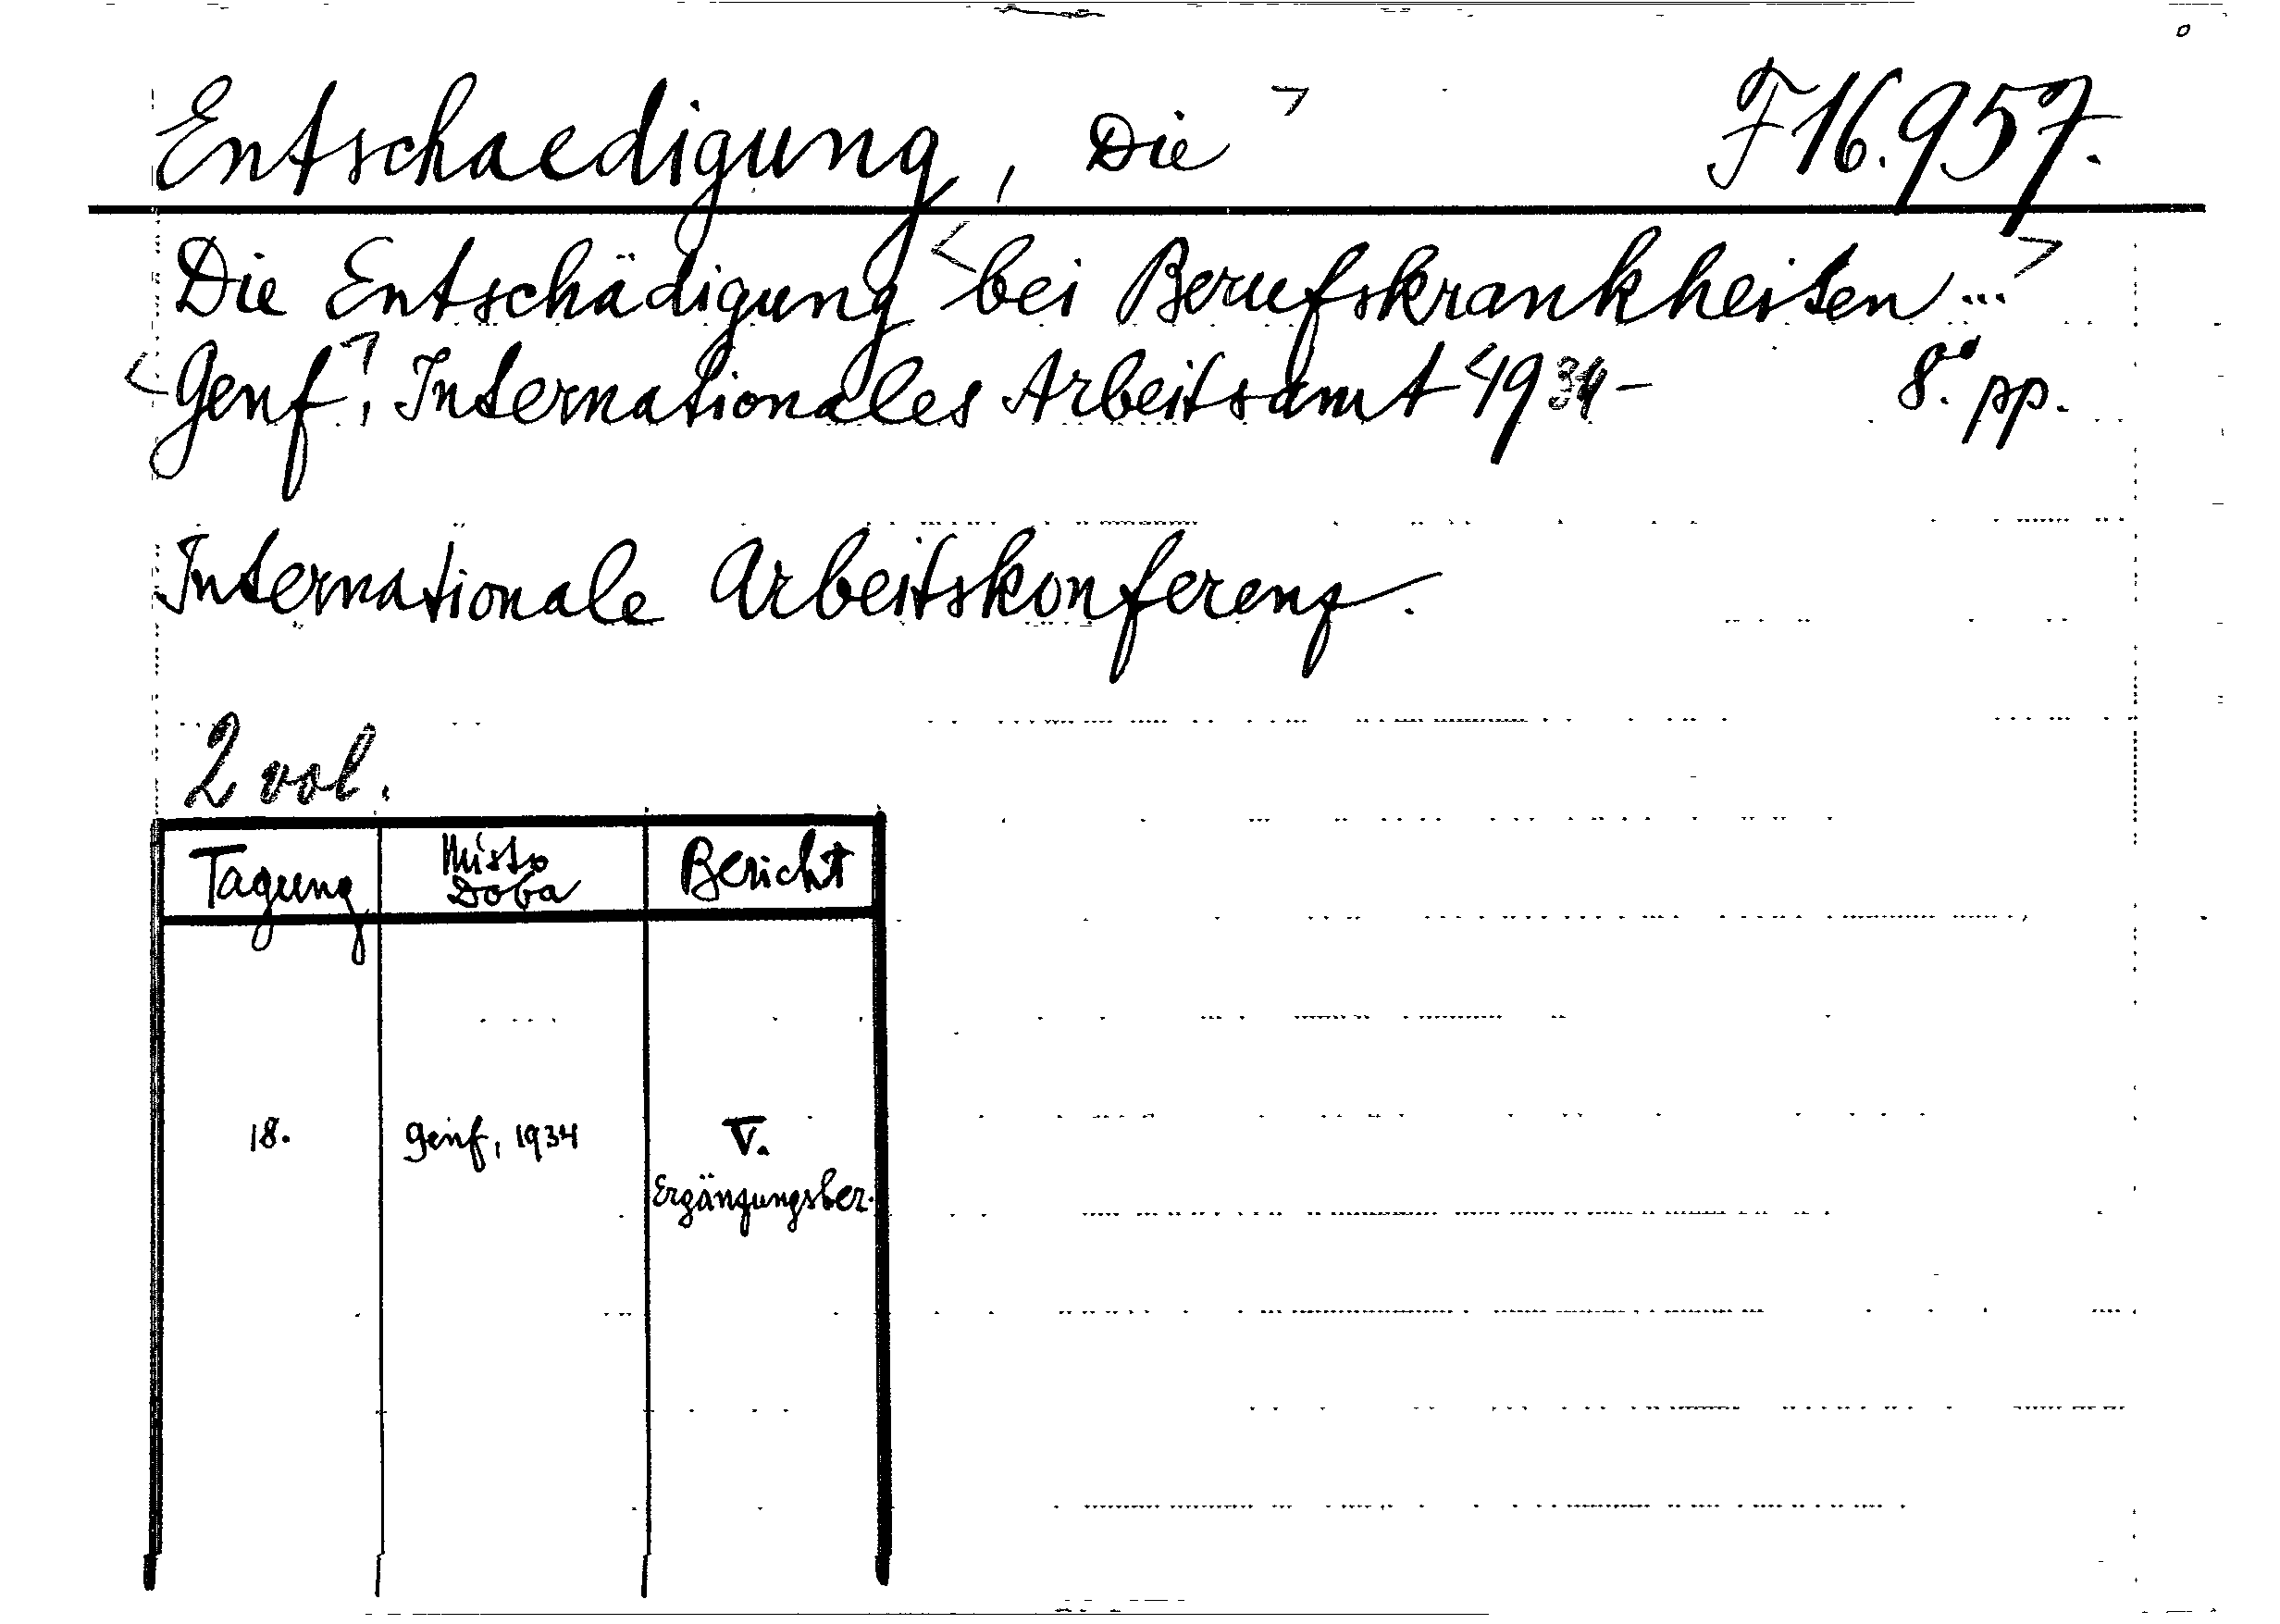 Entschaedigung, Die > F 16.957.
Die Entschädigung <bei Berufskrankheiten...>
<Genf>, Internationales Arbeitsamt <1934- 8° pp.
Internationale Arbeitskonferenz.
2 vol.
Tagung Místo Doba Bericht
18. Genf, 1934 V.
Ergänzungsber.